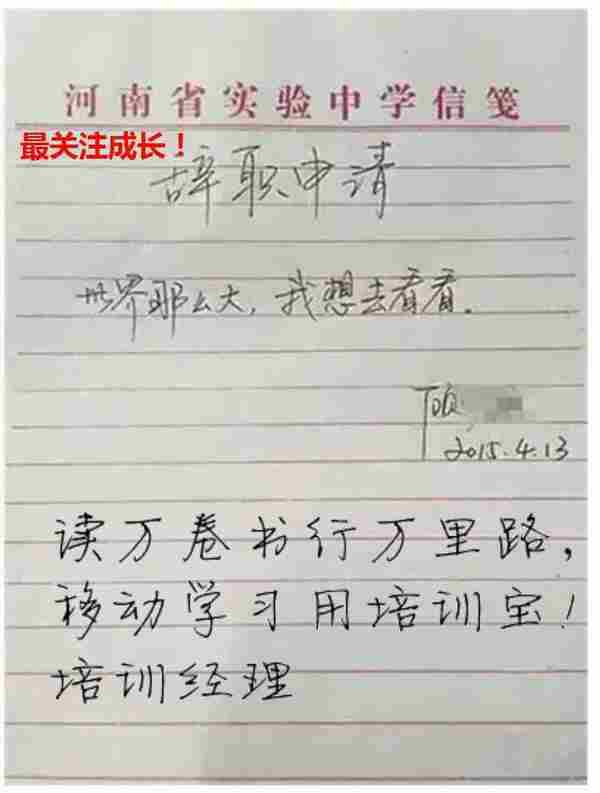 河南省实验中学信笺
最关注成长！
辞职申请
世界那么大，我想去看看。
顾
2015.4.13
读万卷书行万里路，
移动学习用培训宝！
培训经理